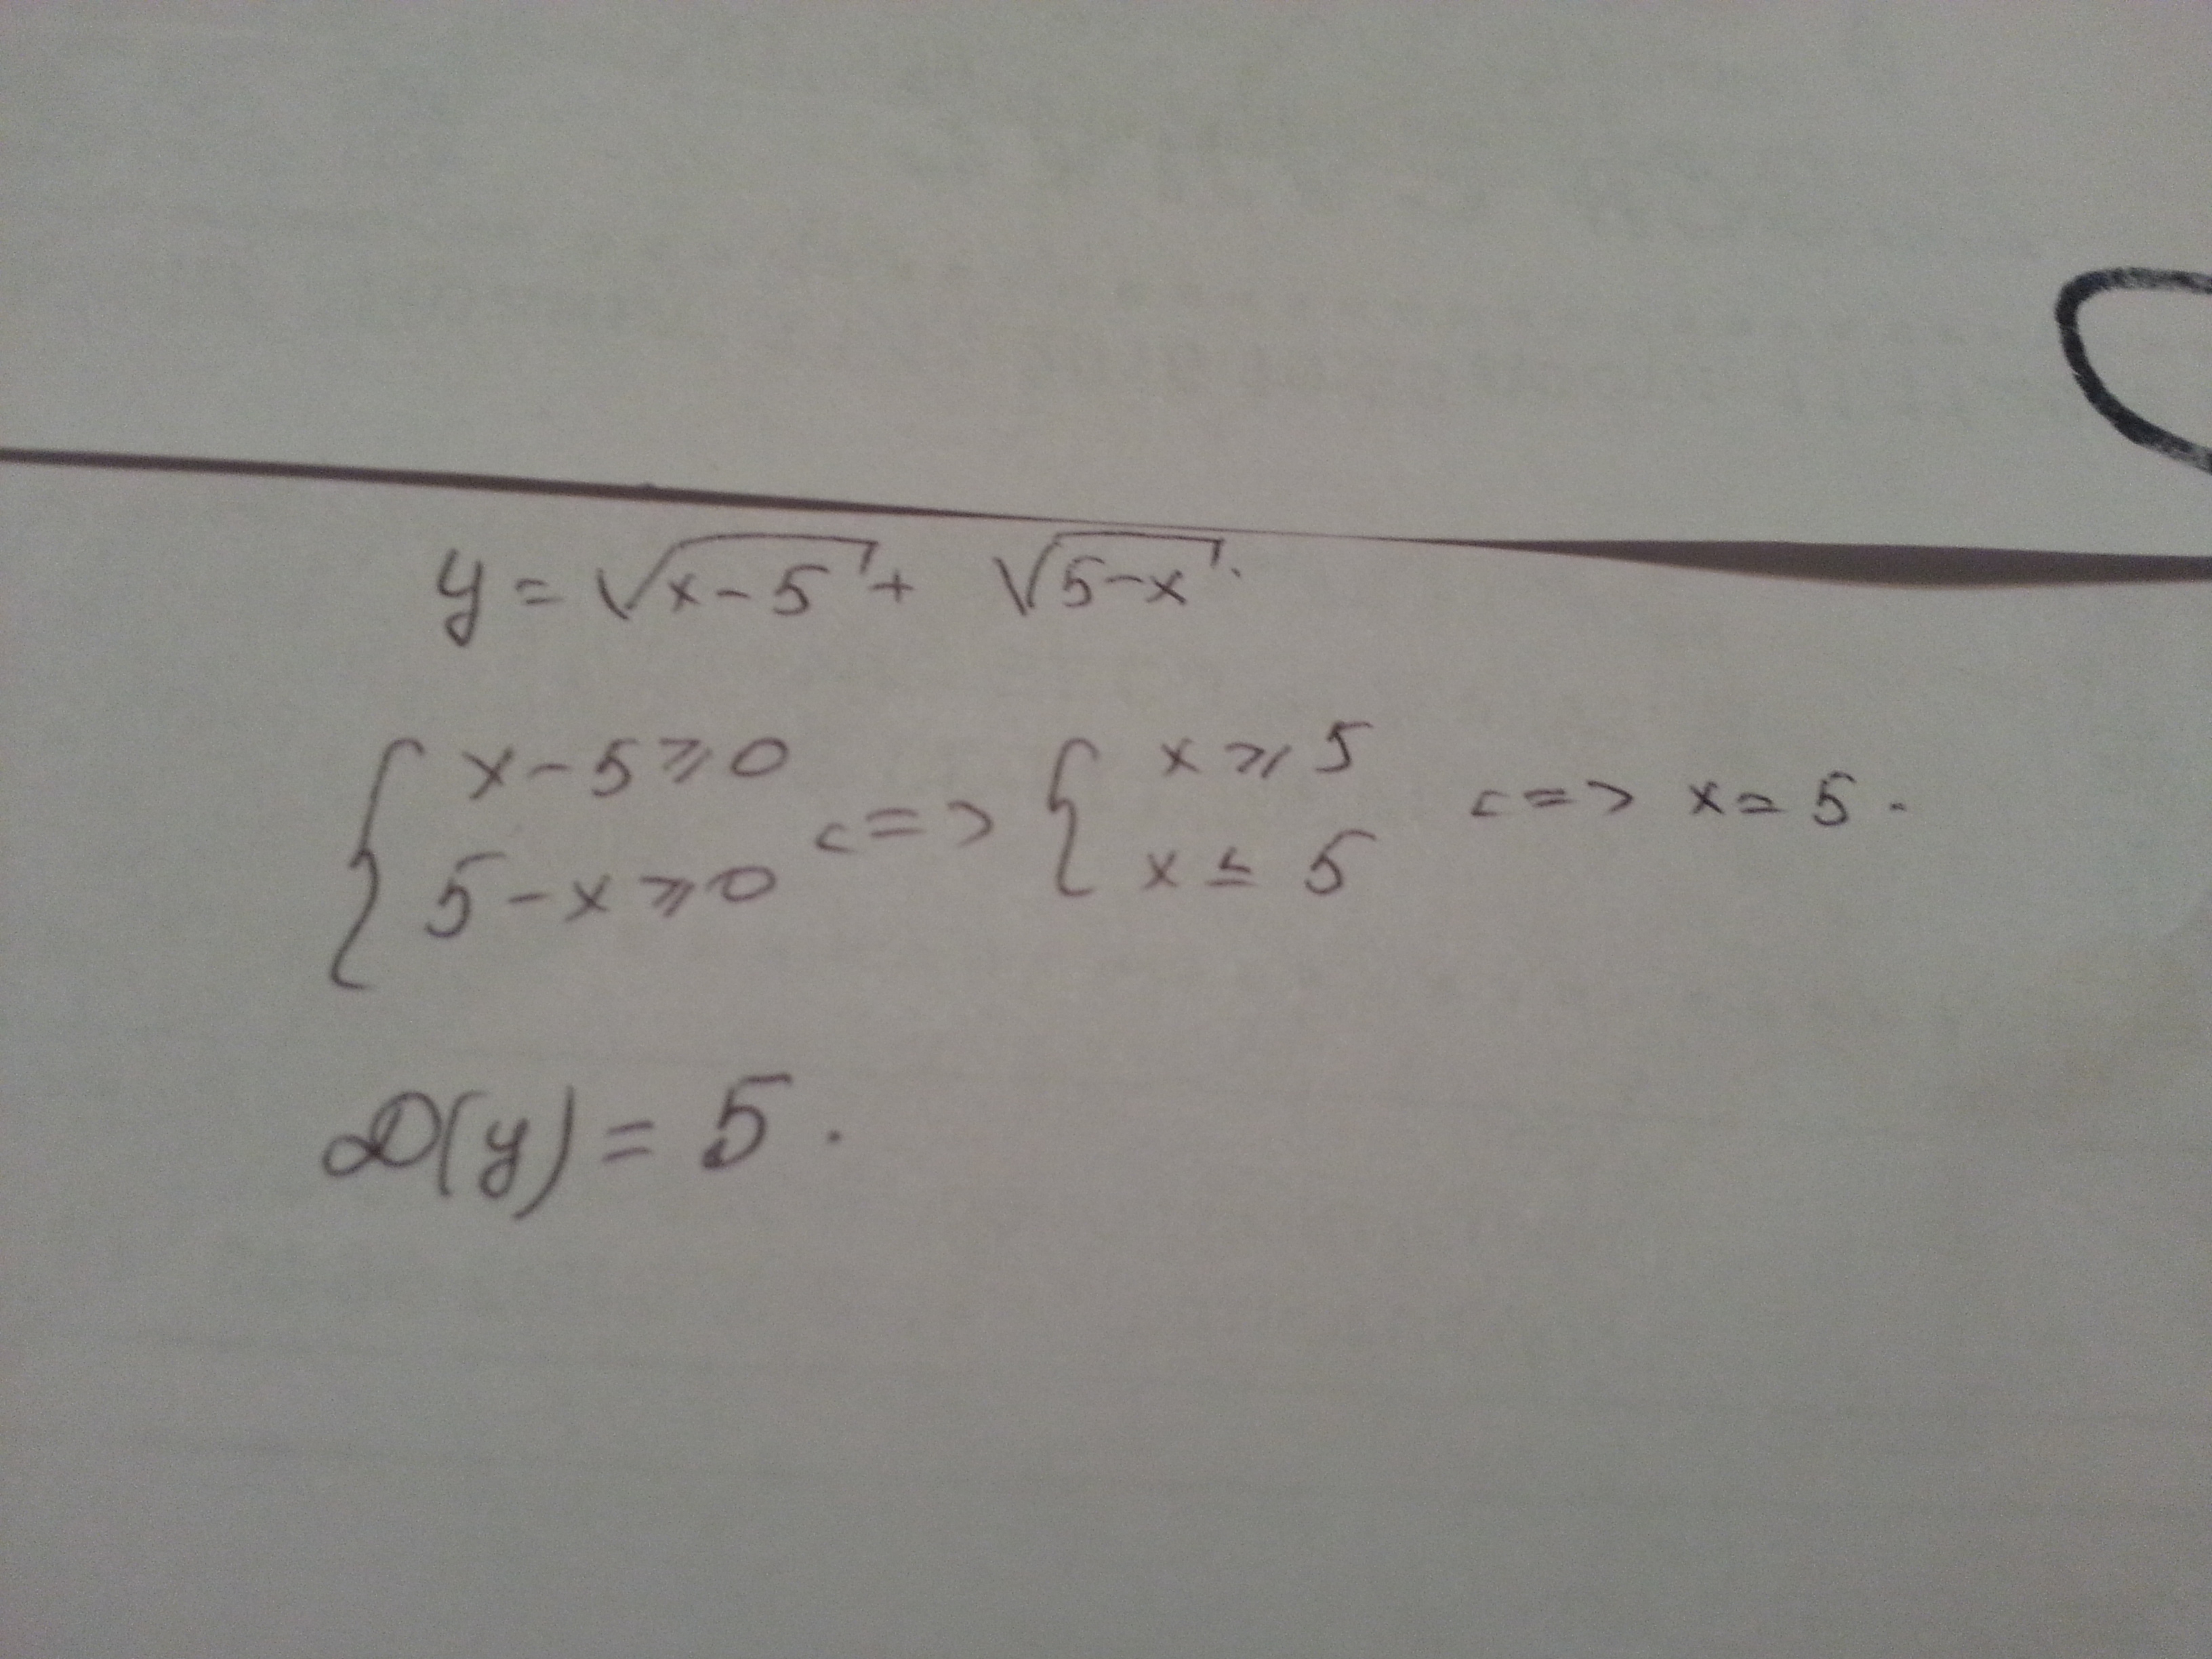 y = √(x-5) + √(5-x).
{ x-5⩾0 <=> { x⩾5 <=> x=5.
5-x⩾0 x≤5
D(y) = 5.